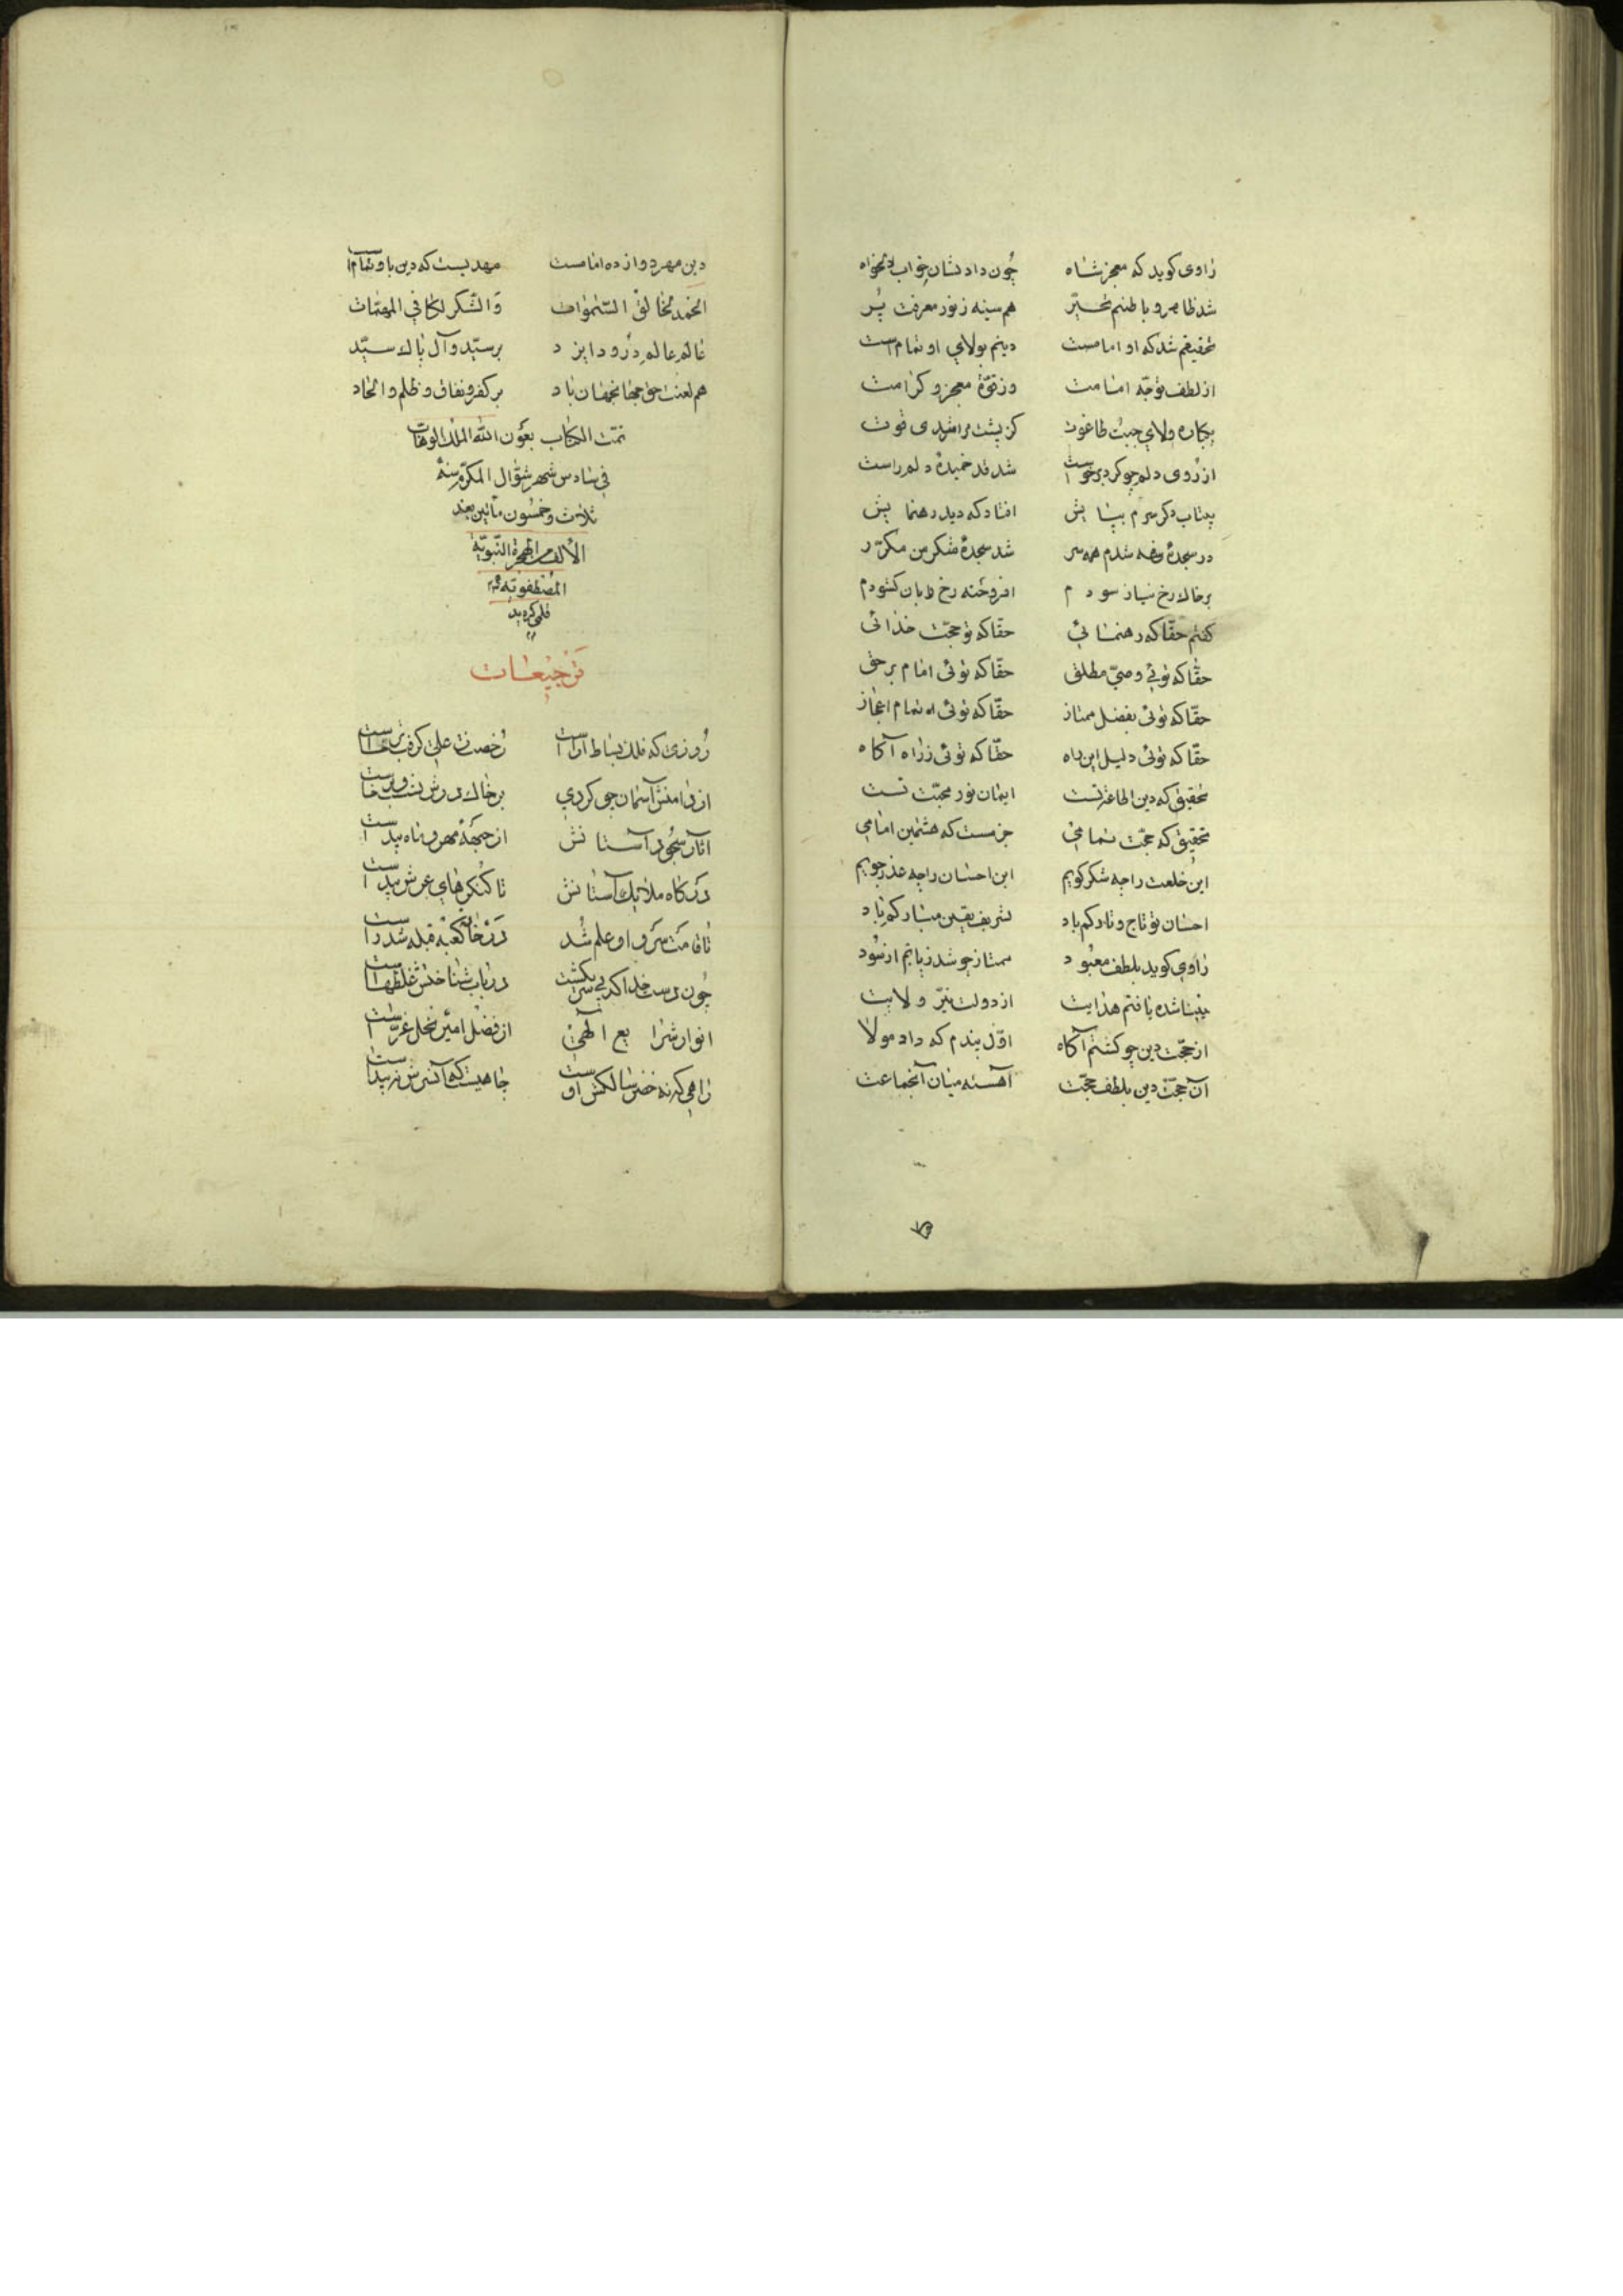 راوی کوید که معجز شاه چون داد نشان خواب دلخواه
شد ظاهر و باطنم تحیّر هم سینه ز نور معرفت پُر
تحقیقم شد که او امامست دینم بولای او تمام است
از لطف توجّه امامت وز قوّة معجز و کرامت
ولای جبت طاغوت
از روی دلم چو کرد برخواست شد قد خمیدۀ دلم راست
افتاد که دید رهنمایش
در سجدۀ شدم همه سر شد سجدۀ شکر من مکرّر
بر خاك رخ نیاز سودم افروخته رخ زبان کشودم
کفتم حقّا که رهنمائی حقّا که تو حجّت خدائی
حقّا که توئی وصیّ مطلق حقّا که توئی امام بر حق
حقّا که توئی بفضل ممتاز حقّا که توئی امام اعجاز
حقّا که توئی دلیل این راه حقّا که توئی ز راه آکاه
تحقیق که دین اطاعة تست ایمان نور محبّت تست
تحقیق که حجّت تمامی جزمست که هشتمین امامی
این خلعت را چه شکر کویم این احسان را چه عذر جویم
احسان تو تاج و تارکم باد تشریف یقین مبارکم باد
راوی کوید بلطف معبود ممتاز چو شد زیانم از سود
بینا شده یافتم هدایت از دولت نیّر ولایت
از حجّت دین چو کشتم آکاه اوّل بندم که داد مولا
آن حجّت دین بلطف حجّت آهسته میان آنجماعت
دین مهر دوازده امامست مهدیست که دین باو تمام است
الحمد لخالق السّموات وَ الشّکر لکافی المهمّات
عالم عالم درود ایزد بر سیّد و آل پاك سیّد
هم لعنت حق بر کفر و نفاق و ظلم و الحاد
تمّت الکتاب بعون الله الملك الوهّاب
فی سادس شهر شوّال المکرّم سنة
ثلاث و خمسون مأتین بعد
الألف من الهجرة النّبویّة
المصطفویّة
ترجیعات
روزی که فلك بساط آراست رخصت ز علی کرفت برخاست
از دامنش آسمان چو کردی بر خاك درش نشست و برخاست
آثار سجود آستانش از جبهۀ مهر و ماه پیداست
درکاه ملایك آستانش تا کنکرهای عرش پیداست
تا قامت سرو او علم شد در خانۀ کعبه قبله شد راست
چون دست خدا در باب شناختش غلطهاست
انوار شرایع الهی از فضل امیر نحل غرّاست
راهی که نه خضر سالکش اوست چاهیست که